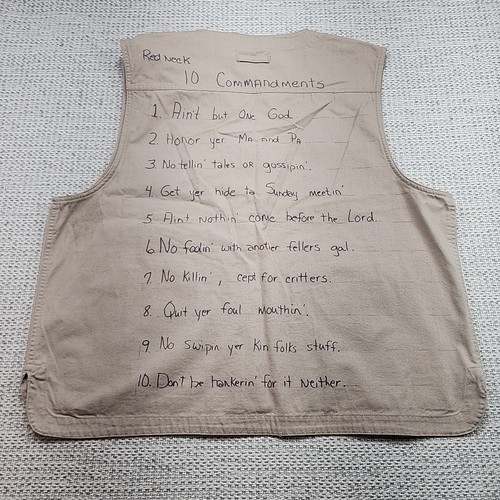 Redneck
10 Commandments
1. Ain't but One God
2. Honor yer Ma and Pa
3. No tellin' tales or gossipin'.
4. Get yer hide to Sunday meetin'
5. Aint nothin' come before the Lord.
6. No foolin' with another fellers gal.
7. No Killin', cept for critters.
8. Quit yer foul mouthin'.
9. No swipin yer Kin folks stuff.
10. Don't be hankerin' for it neither.